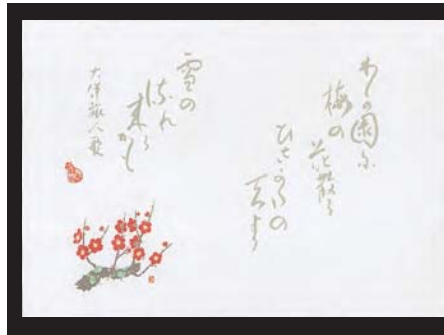 わが園に
梅の花散る
ひさかたの
天より
雪の
流れ
来るかも
大伴旅人歌